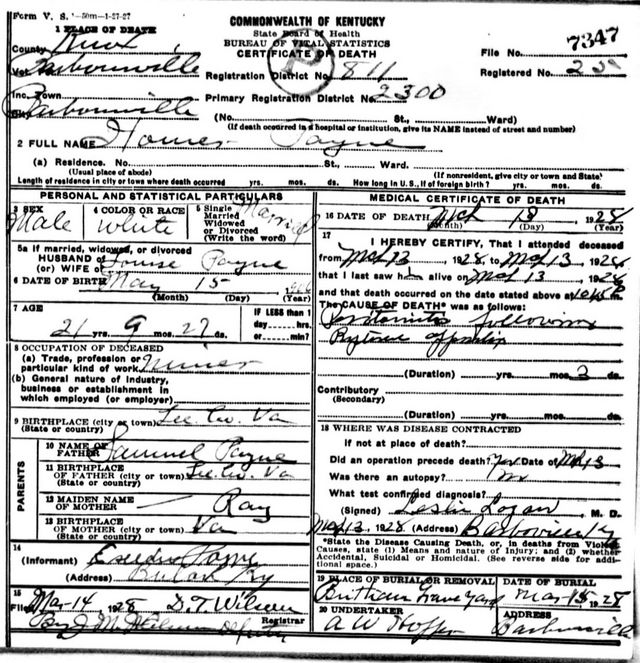 Form V. S. 1-50m-1-27-27
COMMONWEALTH OF KENTUCKY
State Board of Health
BUREAU OF VITAL STATISTICS
CERTIFICATE OF DEATH
1 PLACE OF DEATH
County Knox
File No. 7347
Vot. Barbourville
Registration District No. 811
Registered No.
Inc. Town
Primary Registration District No. 2300
City Barbourville
(No. St., Ward)
(If death occurred in a hospital or institution, give its NAME instead of street and number)
2 FULL NAME Homer Payne
(a) Residence. No. St., Ward.
(Usual place of abode)
(If nonresident, give city or town and State)
Length of residence in city or town where death occurred yrs. mos. ds. How long in U. S., if of foreign birth? yrs. mos. ds.
PERSONAL AND STATISTICAL PARTICULARS
3 SEX
Male
4 COLOR OR RACE
White
5 Single
Married
Widowed
or Divorced
(Write the word)
Married
5a If married, widowed, or divorced
HUSBAND of
(or) WIFE of Louise Payne
6 DATE OF BIRTH May 15
(Month) (Day) (Year)
7 AGE
21 yrs. 9 mos. 27 ds.
IF LESS than 1
day, hrs.
or min.
8 OCCUPATION OF DECEASED
(a) Trade, profession or
particular kind of work Miner
(b) General nature of industry,
business or establishment in
which employed (or employer)
9 BIRTHPLACE (city or town) Lee Co. Va
(State or country)
PARENTS
10 NAME OF
FATHER Samuel Payne
11 BIRTHPLACE
OF FATHER (city or town) Lee Co. Va
(State or country)
12 MAIDEN NAME
OF MOTHER Ray
13 BIRTHPLACE
OF MOTHER (city or town) Va
(State or country)
14
(Informant) Payne
(Address) Ky
15
Filed Mar-14 1928 D. T. Wilson
Registrar
By J M Wilson deputy
MEDICAL CERTIFICATE OF DEATH
16 DATE OF DEATH Mch 13 1928
(Month) (Day) (Year)
17
I HEREBY CERTIFY, That I attended deceased
from Mch 13, 1928, to Mch 13, 1928
that I last saw h alive on Mch 13, 1928
and that death occurred on the date stated above at
The CAUSE OF DEATH* was as follows:
Peritonitis following
Rupture appendix
(Duration) yrs. mos. 3 ds.
Contributory
(Secondary)
(Duration) yrs. mos. ds.
18 WHERE WAS DISEASE CONTRACTED
If not at place of death?
Did an operation precede death? Yes Date of Mch 13
Was there an autopsy? No
What test confirmed diagnosis?
(Signed) Leslie Logan, M. D.
Mch 13, 1928 (Address) Barbourville Ky
*State the Disease Causing Death, or, in deaths from Violent
Causes, state (1) Means and nature of Injury; and (2) whether
Accidental, Suicidal or Homicidal. (See reverse side for addi-
tional space.)
19 PLACE OF BURIAL OR REMOVAL
Grave Yard
DATE OF BURIAL
Mar 15 1928
20 UNDERTAKER
A W Hopper
ADDRESS
Barbourville